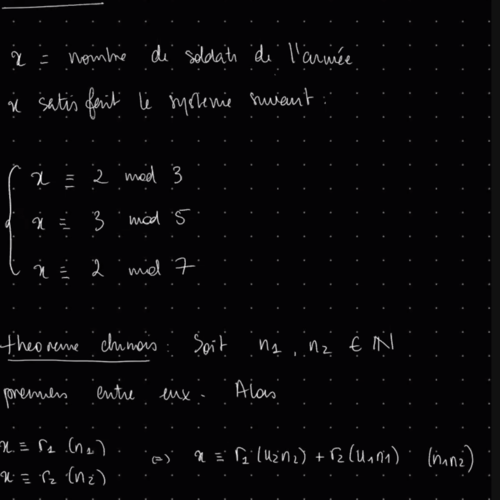 x = nombre de soldats de l'armée
x satisfait le système suivant :
x ≡ 2 mod 3
x ≡ 3 mod 5
x ≡ 2 mod 7
théorème chinois : Soit n1, n2 ∈ ℕ
premiers entre eux. Alors
x ≡ r1 (n1)
x ≡ r2 (n2)
⇔ x ≡ r1 (u2n2) + r2 (u1n1) (n1n2)